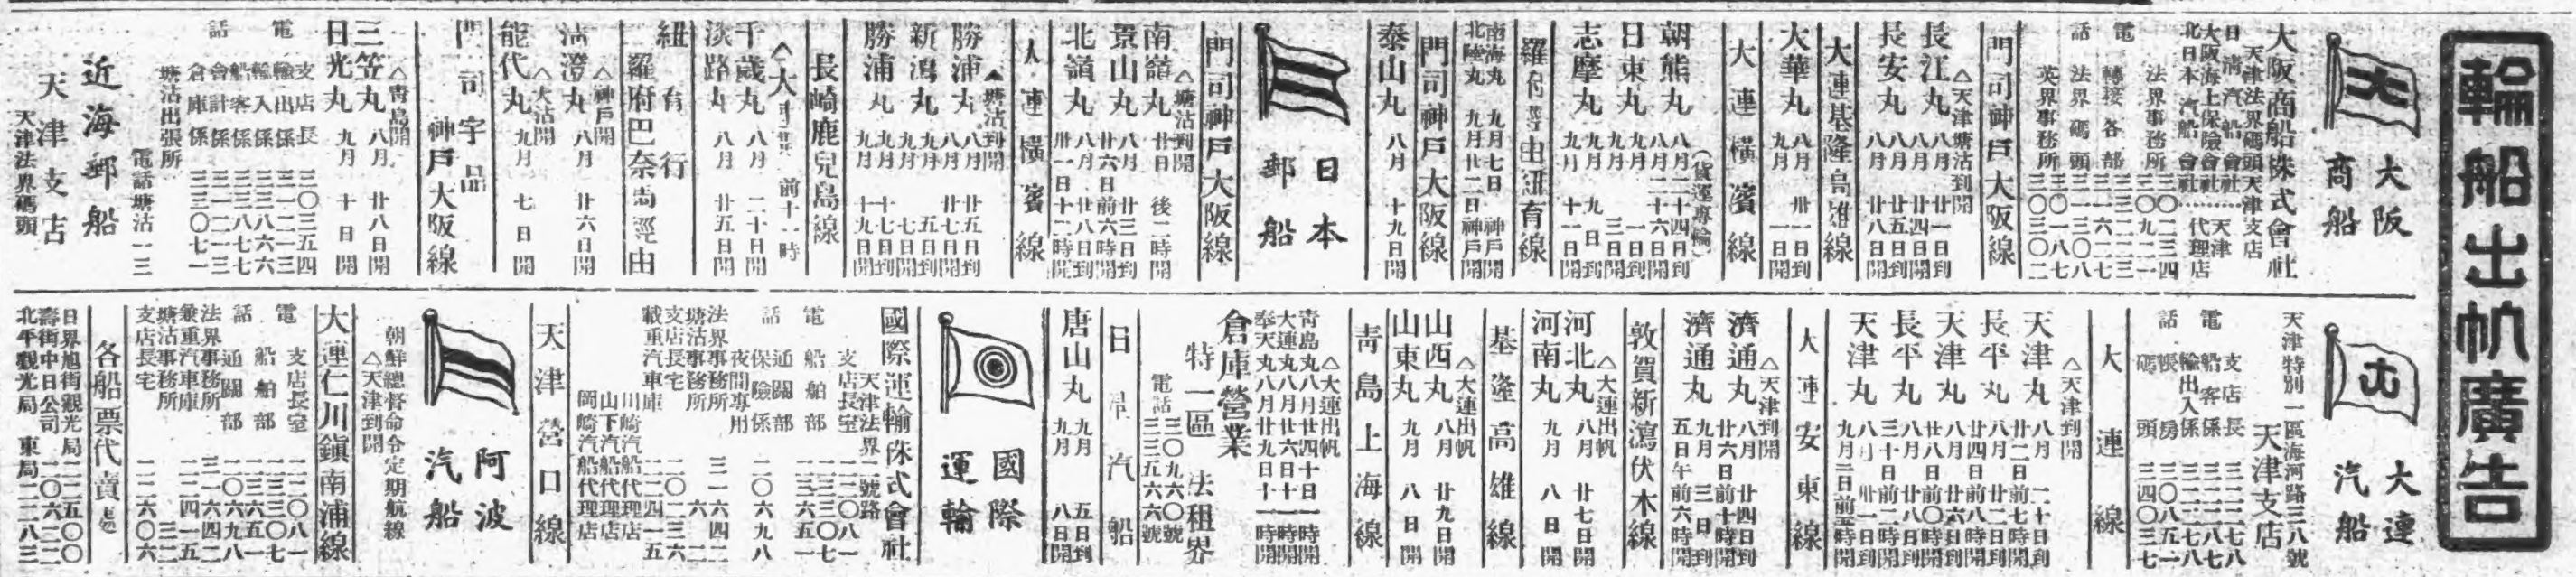 輪船出帆廣告
大阪商船
大阪商船株式會社
天津法界碼頭天津支店
日清汽船會社……天津
大阪海上保險會社……代理店
北日本汽船會社
電話
法界事務所 三〇二三四
三〇九二一
轉接各部 三三二二三
三一六二七
法界碼頭 三一三〇八
英界事務所 三〇一八七
三〇三〇二
門司神戶大阪線
△天津塘沽到開
長江丸 八月廿一日到
八月廿四日開
長安丸 八月廿五日到
八月廿八日開
大連基隆高雄線
大華丸 八月卅一日到
九月一日開
大連橫濱線
(貨運專輪)
朝熊丸 八月二十四日到
八月二十六日開
日東丸 九月一日到
九月三日開
志摩丸 九月九日到
九月十一日開
南海丸 九月七日神戶開
北陸丸 九月廿二日神戶開
門司神戶大阪線
泰山丸 八月十九日開
日本郵船
門司神戶大阪線
△塘沽到開
南嶺丸 廿日後二時開
景山丸 八月廿三日到
廿六日前六時開
北嶺丸 八月廿八日到
卅一日十二時開
大連橫濱線
▲塘沽到開
勝浦丸 八月廿五日到
八月廿七日開
新瀉丸 九月五日到
九月七日開
勝浦丸 九月十七日到
九月十九日開
長崎鹿兒島線
千歲丸 八月二十日開
淡路丸 八月廿五日開
紐育行
羅府巴奈馬經由
△神戶開
清澄丸 八月廿六日開
△大沽開
能代丸 九月七日開
門司宇品
神戶大阪線
△靑島開
三笠丸 八月廿八日開
日光丸 九月十日開
電話
支店長 三〇三五四
輸出係 三一二一三
輸入係 三三八六六
船客係 三三八七七
會計係 三一二一三
倉庫係 三三〇七一
塘沽出張所
電話塘沽一三
近海郵船
天津支店
天津法界碼頭
大連汽船
天津特別一區海河路三八號
天津支店
電話
支店長 三二二七八
船客係 三二二八七
輸出入係 三二二七八
帳房 三〇八五一
碼頭 三四〇三七
大連線
△天津到開
天津丸 八月二十日到
廿二日前七時開
長平丸 八月廿二日到
廿四日前八時開
天津丸 八月廿六日到
廿八日前〇時開
長平丸 八月廿八日到
三十日前二時開
天津丸 八月卅一日到
大連安東線
△天津到開
濟通丸 八月廿四日到
廿六日前十時開
濟通丸 九月三日到
五日午前六時開
敦賀新瀉伏木線
△大連出帆
河北丸 八月廿七日開
河南丸 九月八日開
基隆高雄線
△大連出帆
山西丸 八月廿九日開
山東丸 九月八日開
靑島上海線
△大連出帆
靑島丸八月廿四十日一時開
大連丸八月廿六日十一時開
奉天丸八月廿九日十一時開
倉庫營業
特一區 法租界
電話三〇九六〇號
三三五六六號
日淸汽船
唐山丸 九月五日到
九月八日開
國際運輸
國際運輸株式會社
天津法界二號路
電話
支店長室 一二〇八一
船舶部 一三三〇七
一三六五一
通關部
保險係 一〇六九八
夜間專用
法界事務所 三一六四二
塘沽事務所
支店長宅 一二〇二三六
載重汽車庫 一二四一五
川崎汽船代理店
山下汽船代理店
岡崎汽船代理店
天津營口線
阿波汽船
朝鮮總督命令定期航線
△天津到開
大連仁川鎮南浦線
電話
支店長室 一二〇八一
船舶部 一三三〇七
一三六五一
通關部 一〇六九八
法界事務所 三一六四二
兼重汽車庫 一二四一五
塘沽事務所 三二
支店長宅 一二六〇六
各船票代賣處
日界旭街觀光局 二二五〇〇
壽街中日公司 二〇六二二
北平觀光局 東局二二八三